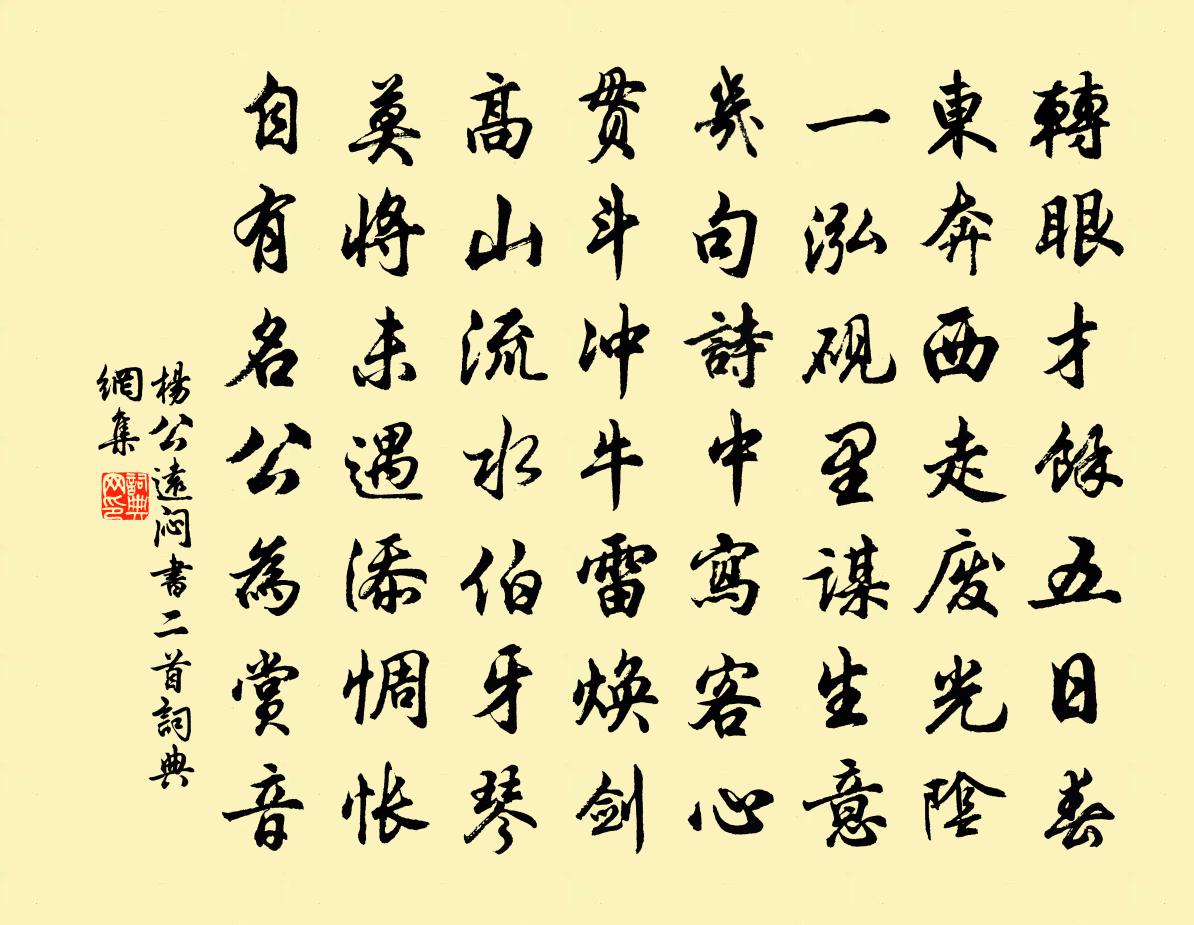 轉眼才餘五日春
東奔西走废光陰
一泓砚里謀生意
幾句詩中寫客心
贯斗冲牛雷焕剑
高山流水伯牙琴
莫將未遇添惆怅
自有名公為賞音
楊公遠闷書二首詞典
網集
詞典网印